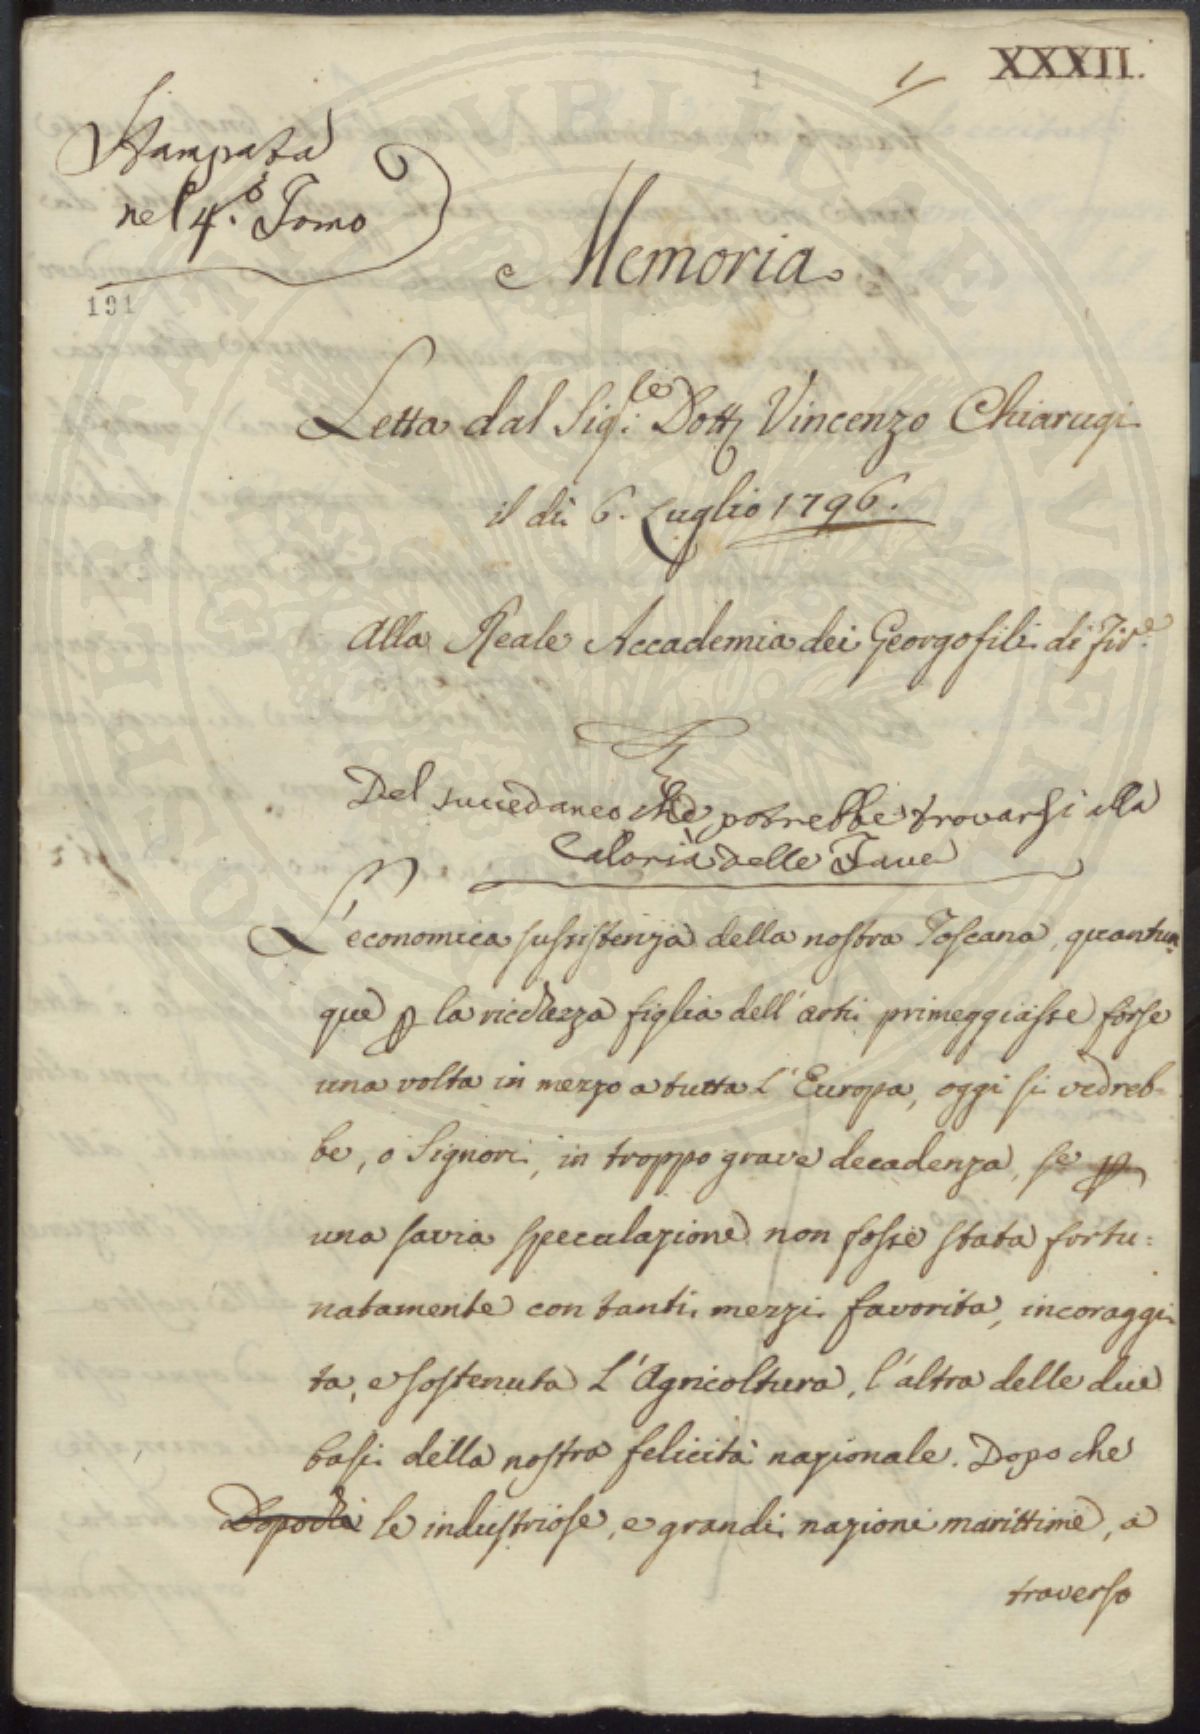 XXXII.
1
1
Stampata
nel 4.º Tomo
191
Memoria
Letta dal Sig.re Dott Vincenzo Chiarugi
il dì 6. Luglio 1796.
Alla Reale Accademia dei Georgofili di Fir.e
Del succedaneo che potrebbe trovarsi alla
Caloria delle Fave
L'economica sussistenza della nostra Toscana, quantun
que p la ricchezza figlia dell'arti primeggiasse forse
una volta in mezzo a tutta l'Europa, oggi si vedreb=
be, o Signori, in troppo grave decadenza, se p
una savia speculazione non fosse stata fortu=
natamente con tanti mezzi favorita, incoraggi
ta, e sostenuta l'Agricoltura, l'altra delle due
basi della nostra felicità nazionale. Dopo che
Dopochè le industriose, e grandi nazioni marittime, a
traverso